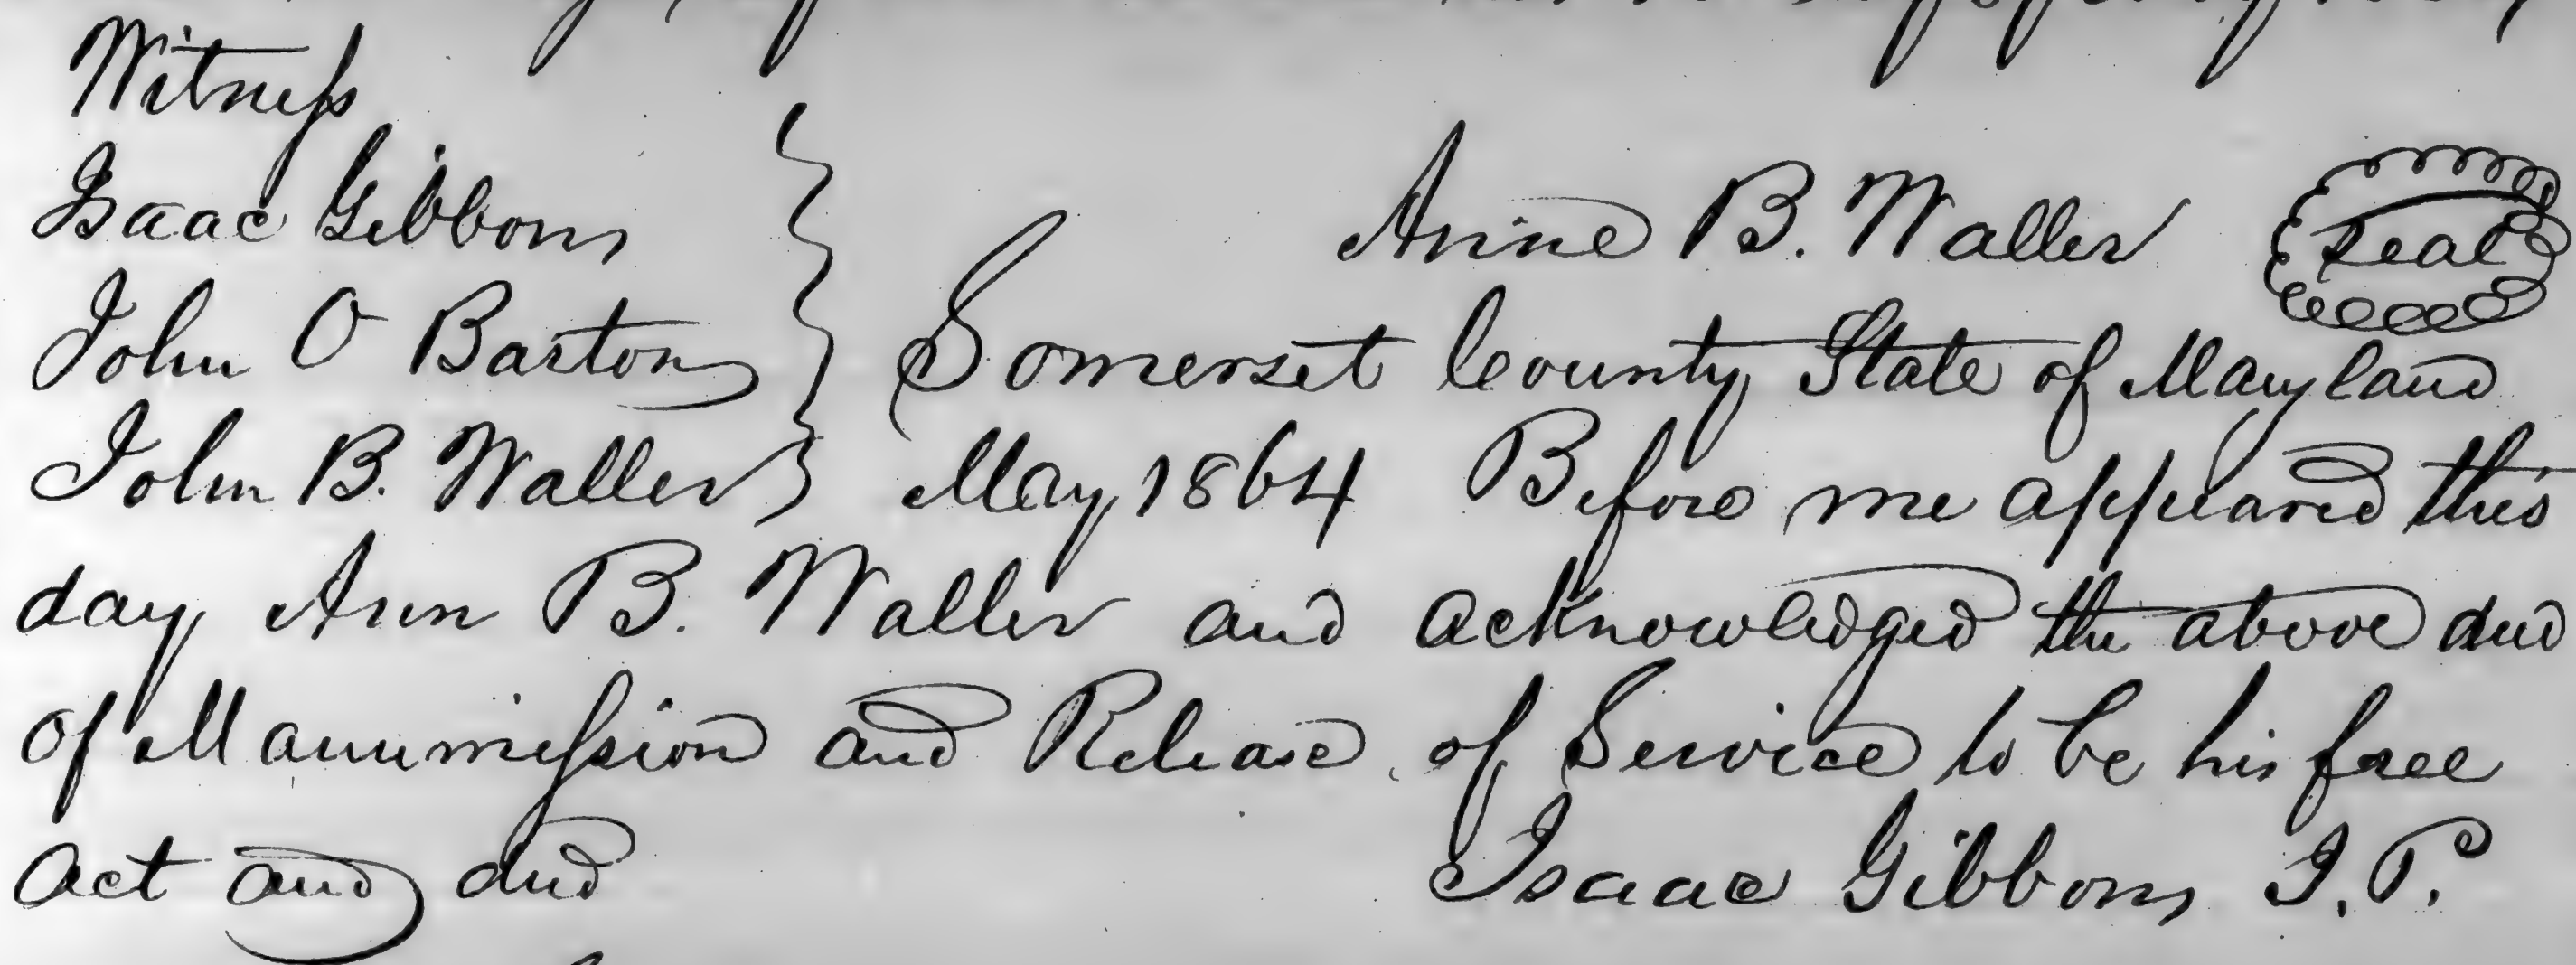 Witness
Isaac Gibbons
Anne B. Waller Seal
John O Barton
Somerset County State of Maryland
John B. Waller
May 1864 Before me appeared this
day Ann B. Waller and acknowledged the above deed
of Manumission and Release of Service to be his free
act and deed
Isaac Gibbons J.P.